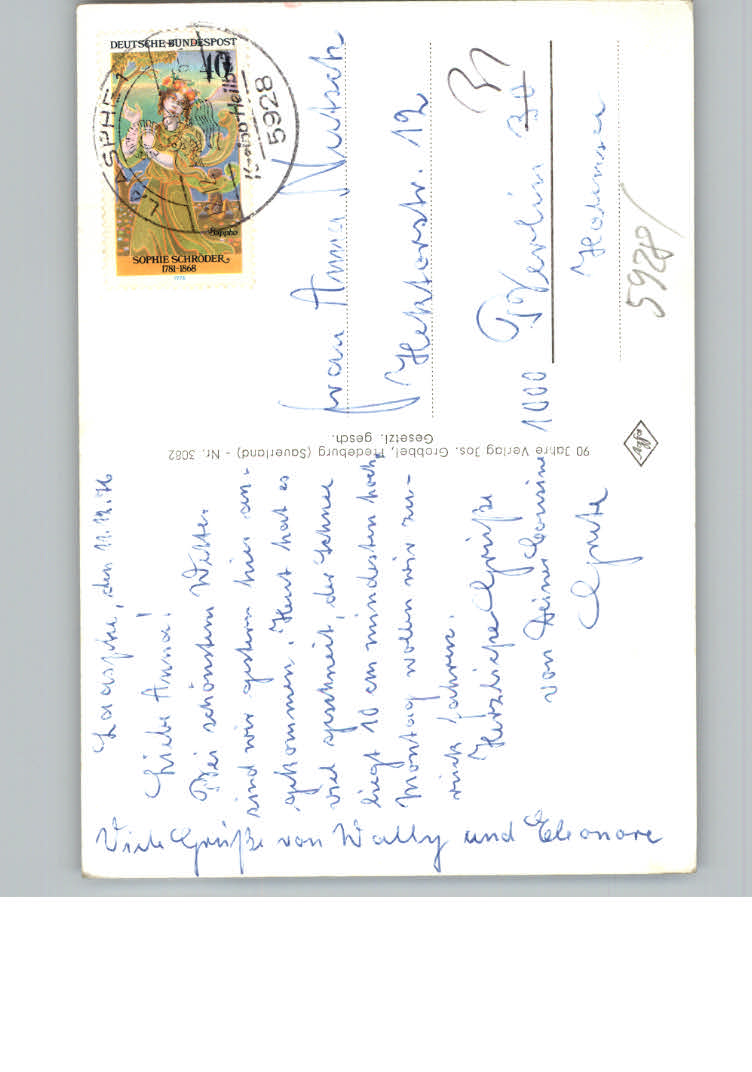 Laasphe, den 11.12.76
Liebe Anna!
Bei schönstem Wetter
sind wir gestern hier an-
gekommen. Heut hat es
viel geschneit, der Schnee
liegt 10 cm mindesten hoch.
Montag wollen wir zu-
rück fahren.
Herzliche Grüße
von Deiner Cousine
Grete
Viele Grüße von Wally und Eleonore
90 Jahre Verlag Jos. Grobbel, Fredeburg (Sauerland) - Nr. 3082
Gesetzl. gesch.
DEUTSCHE BUNDESPOST
40
Sappho
SOPHIE SCHRÖDER
1781-1868
1976
5928
LAASPHE 1
Frau Anna
Hektorstr. 12
1000 Berlin 30
31
Halensee
5928